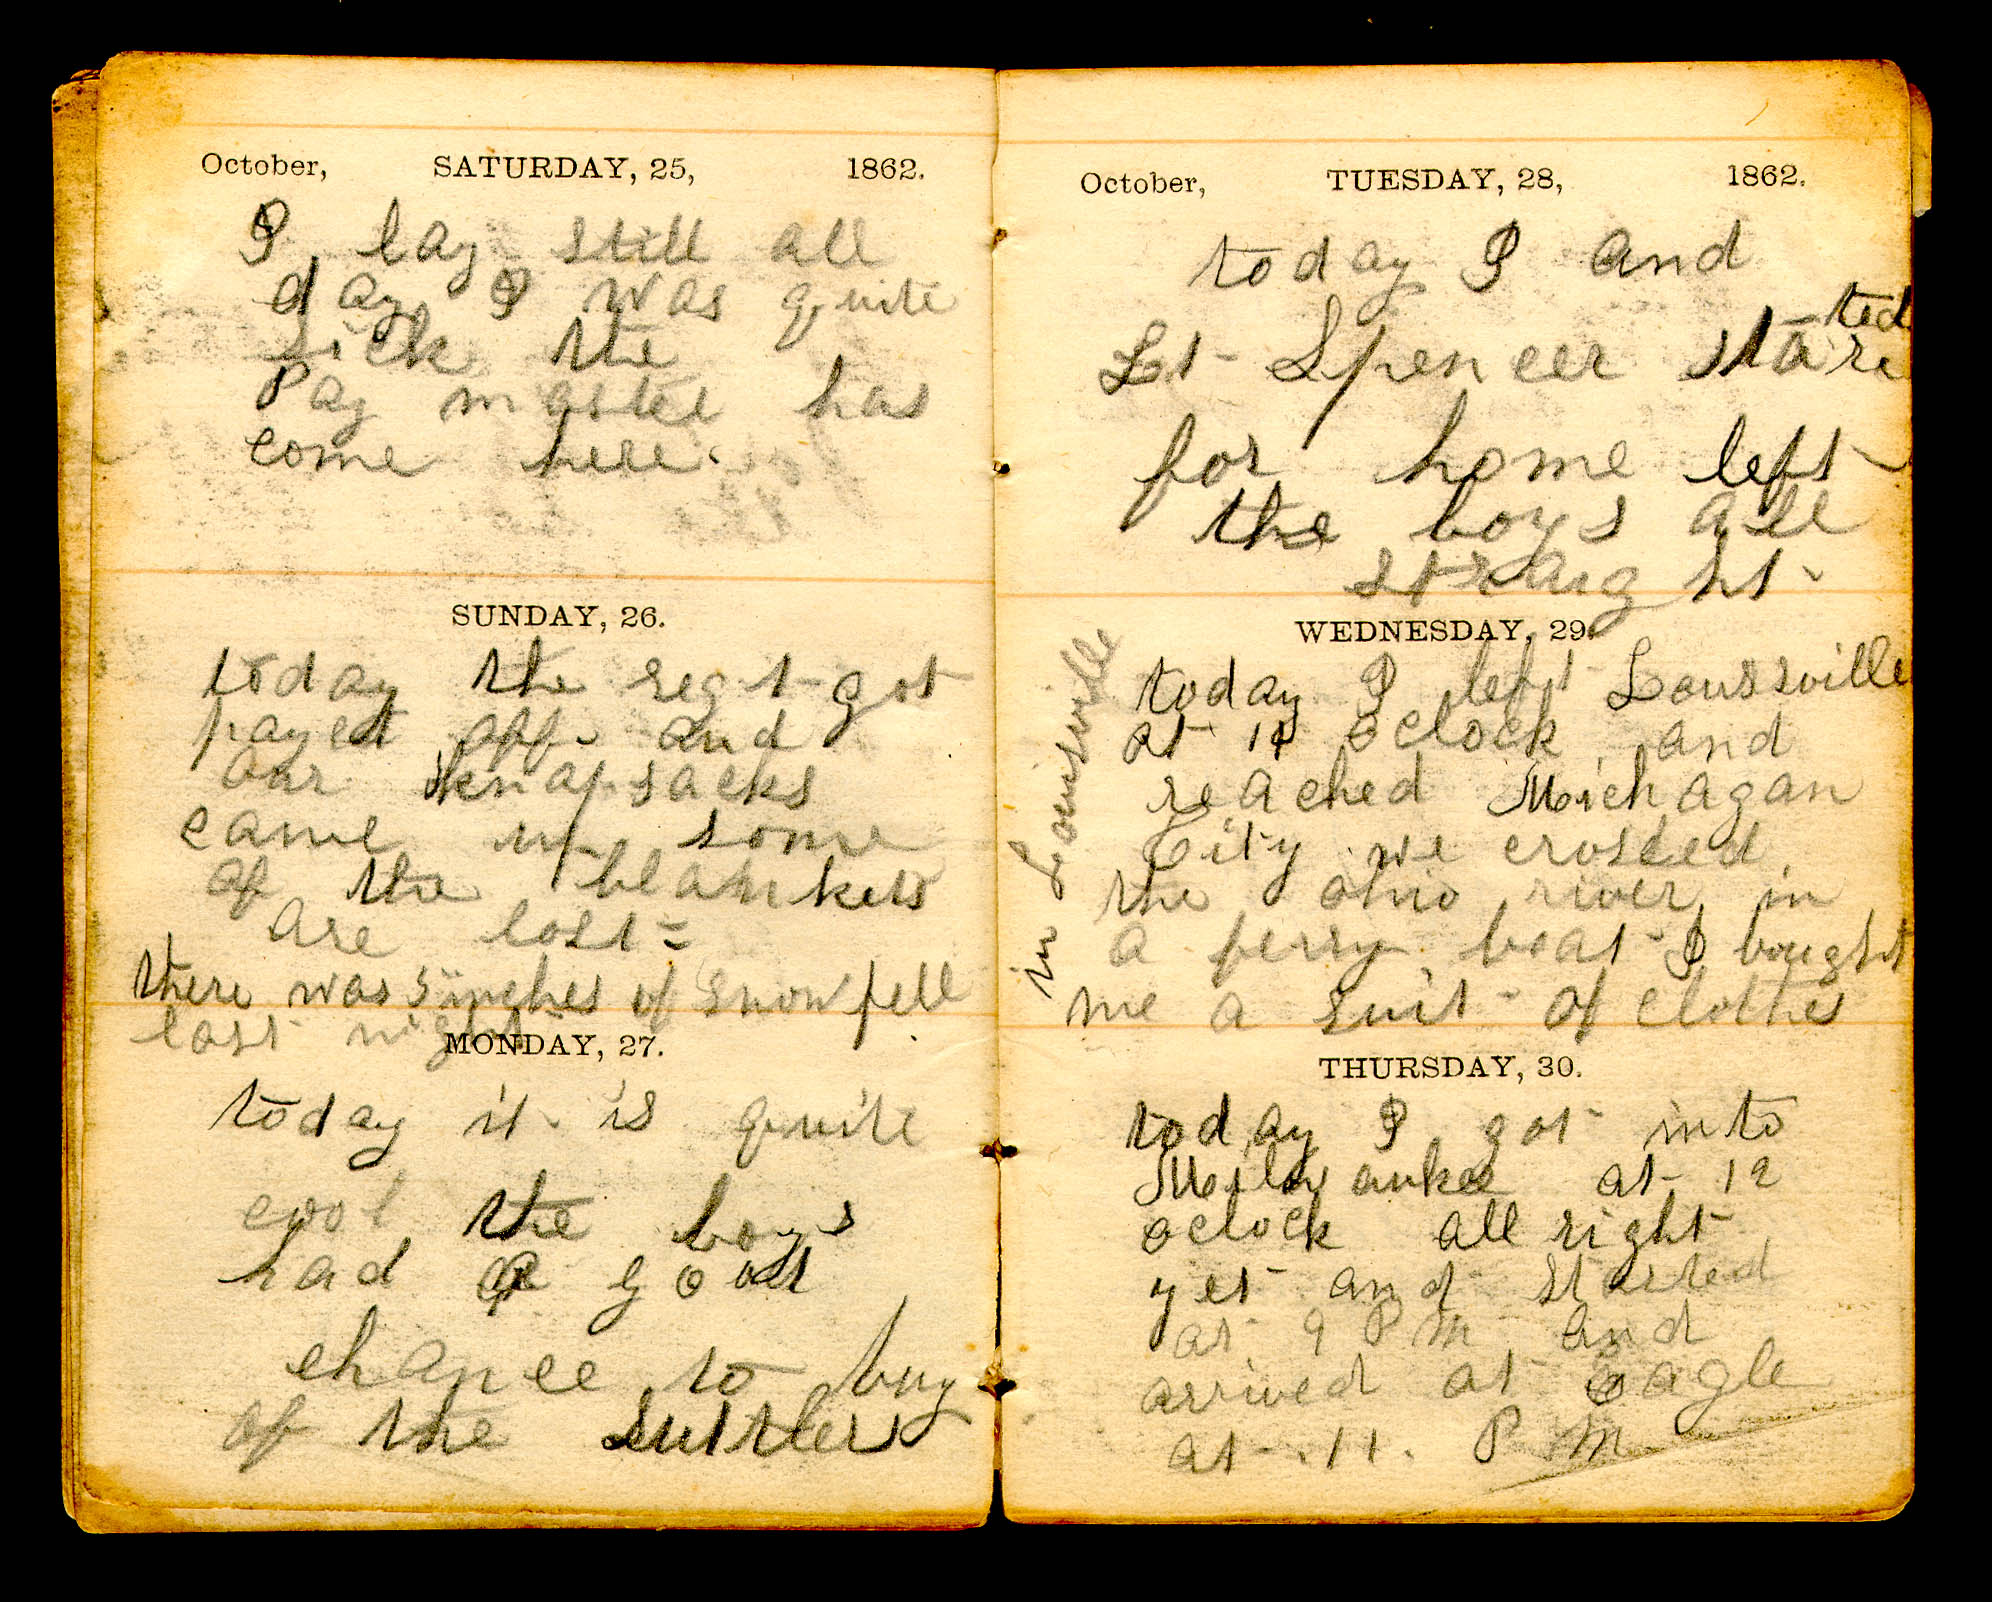 October, SATURDAY, 25, 1862.
I lay still all
day I was quite
sick the
Pay master has
come here.
SUNDAY, 26.
today the regt got
payed off and
our knapsacks
came up some
of the blankets
are lost =
there was 5 inches of snow fell
last night
MONDAY, 27.
today it is quite
cool the boys
had a good
chance to buy
of the sutler
October, TUESDAY, 28, 1862.
today I and
Lt Spencer started
for home left
the boys all
straight
WEDNESDAY, 29.
today I left Loussville
at 10 oclock and
reached Michagan
City we crossed
the ohio river in
a ferry boat I bought
me a suit of clothes
in Louisville
THURSDAY, 30.
today I got into
Milwaukee at 12
oclock all right
yet and started
at 9 P M and
arrived at eagle
at 11. P M